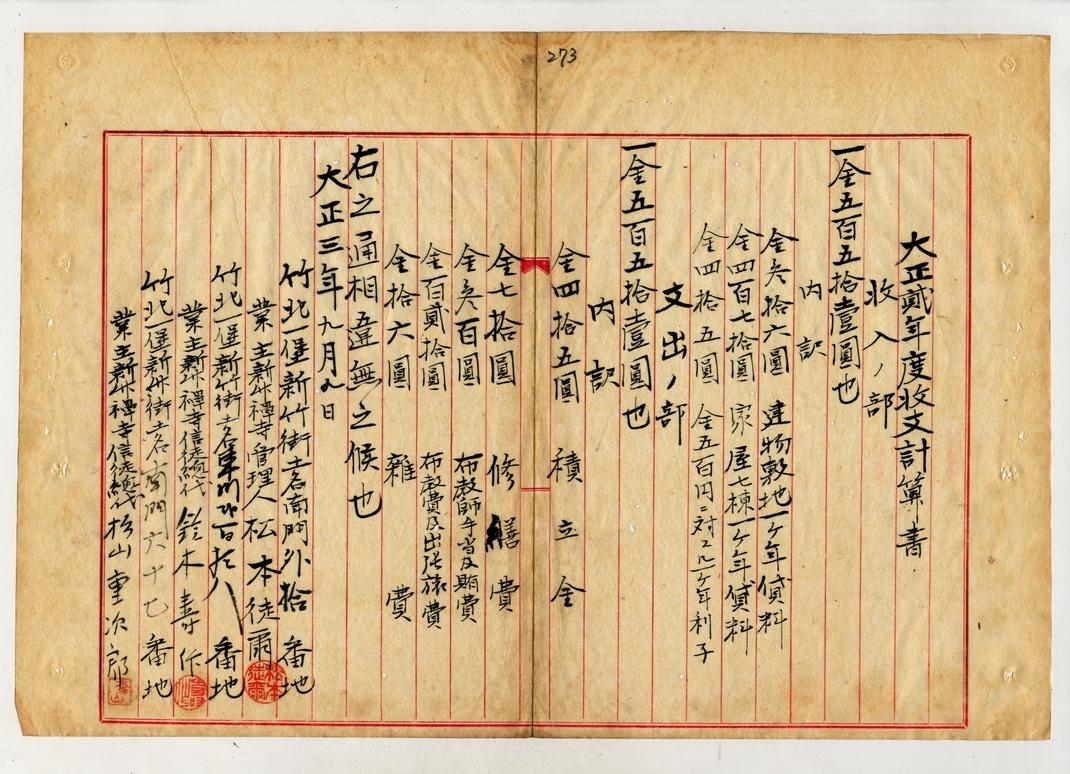 273
大正貳年度收支計算書
收入ノ部
一金五百五拾壹圓也
内訳
金参拾六圓 建物敷地一ケ年貸料
金四百七拾圓 家屋七棟一ケ年貸料
金四拾五圓 金五百円ニ対スル一ケ年利子
支出ノ部
一金五百五拾壹圓也
内訳
金四拾五圓 積立金
金七拾圓 修繕費
金参百圓 布教師手当及賄費
金百貳拾圓 布教費及出張旅費
金拾六圓 雜費
右之通相違無之候也
大正三年九月九日
竹北一堡新竹街土名南門外拾番地
業主新竹禅寺管理人松本徒爾
竹北一堡新竹街土名東門外百拾八番地
業主新竹禅寺信徒總代 鈴木壽作
竹北一堡新竹街土名南門六十七番地
業主新竹禅寺信徒總代 杉山重次郎